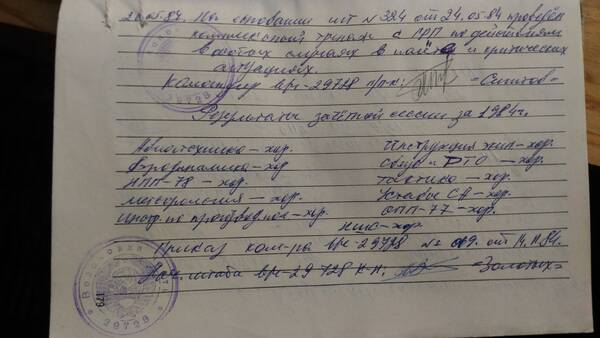 26.05.84. На основании шт № 324 от 24.05.84 проведён
комплексный тренаж с ГРП по действиям
в особых случаях в полёте и критических
ситуациях.
Командир в/ч-29728 п/п-к: =Синитов=
Результаты зачётной сессии за 1984г.
Авиатехника – хор. Инструкция экип – хор.
Аэродинамика – хор Связь и РТО – хор.
НПП-78 – хор. Тактика – хор.
метеорология – хор. Уставы СА – хор.
Инстр. по производ – хор. ОПП-77 – хор.
НШС – хор.
Приказ ком-ра в/ч-29728 № 09. от 14.11.84.
Нач. штаба в/ч-29728 к-н: =Золотых=